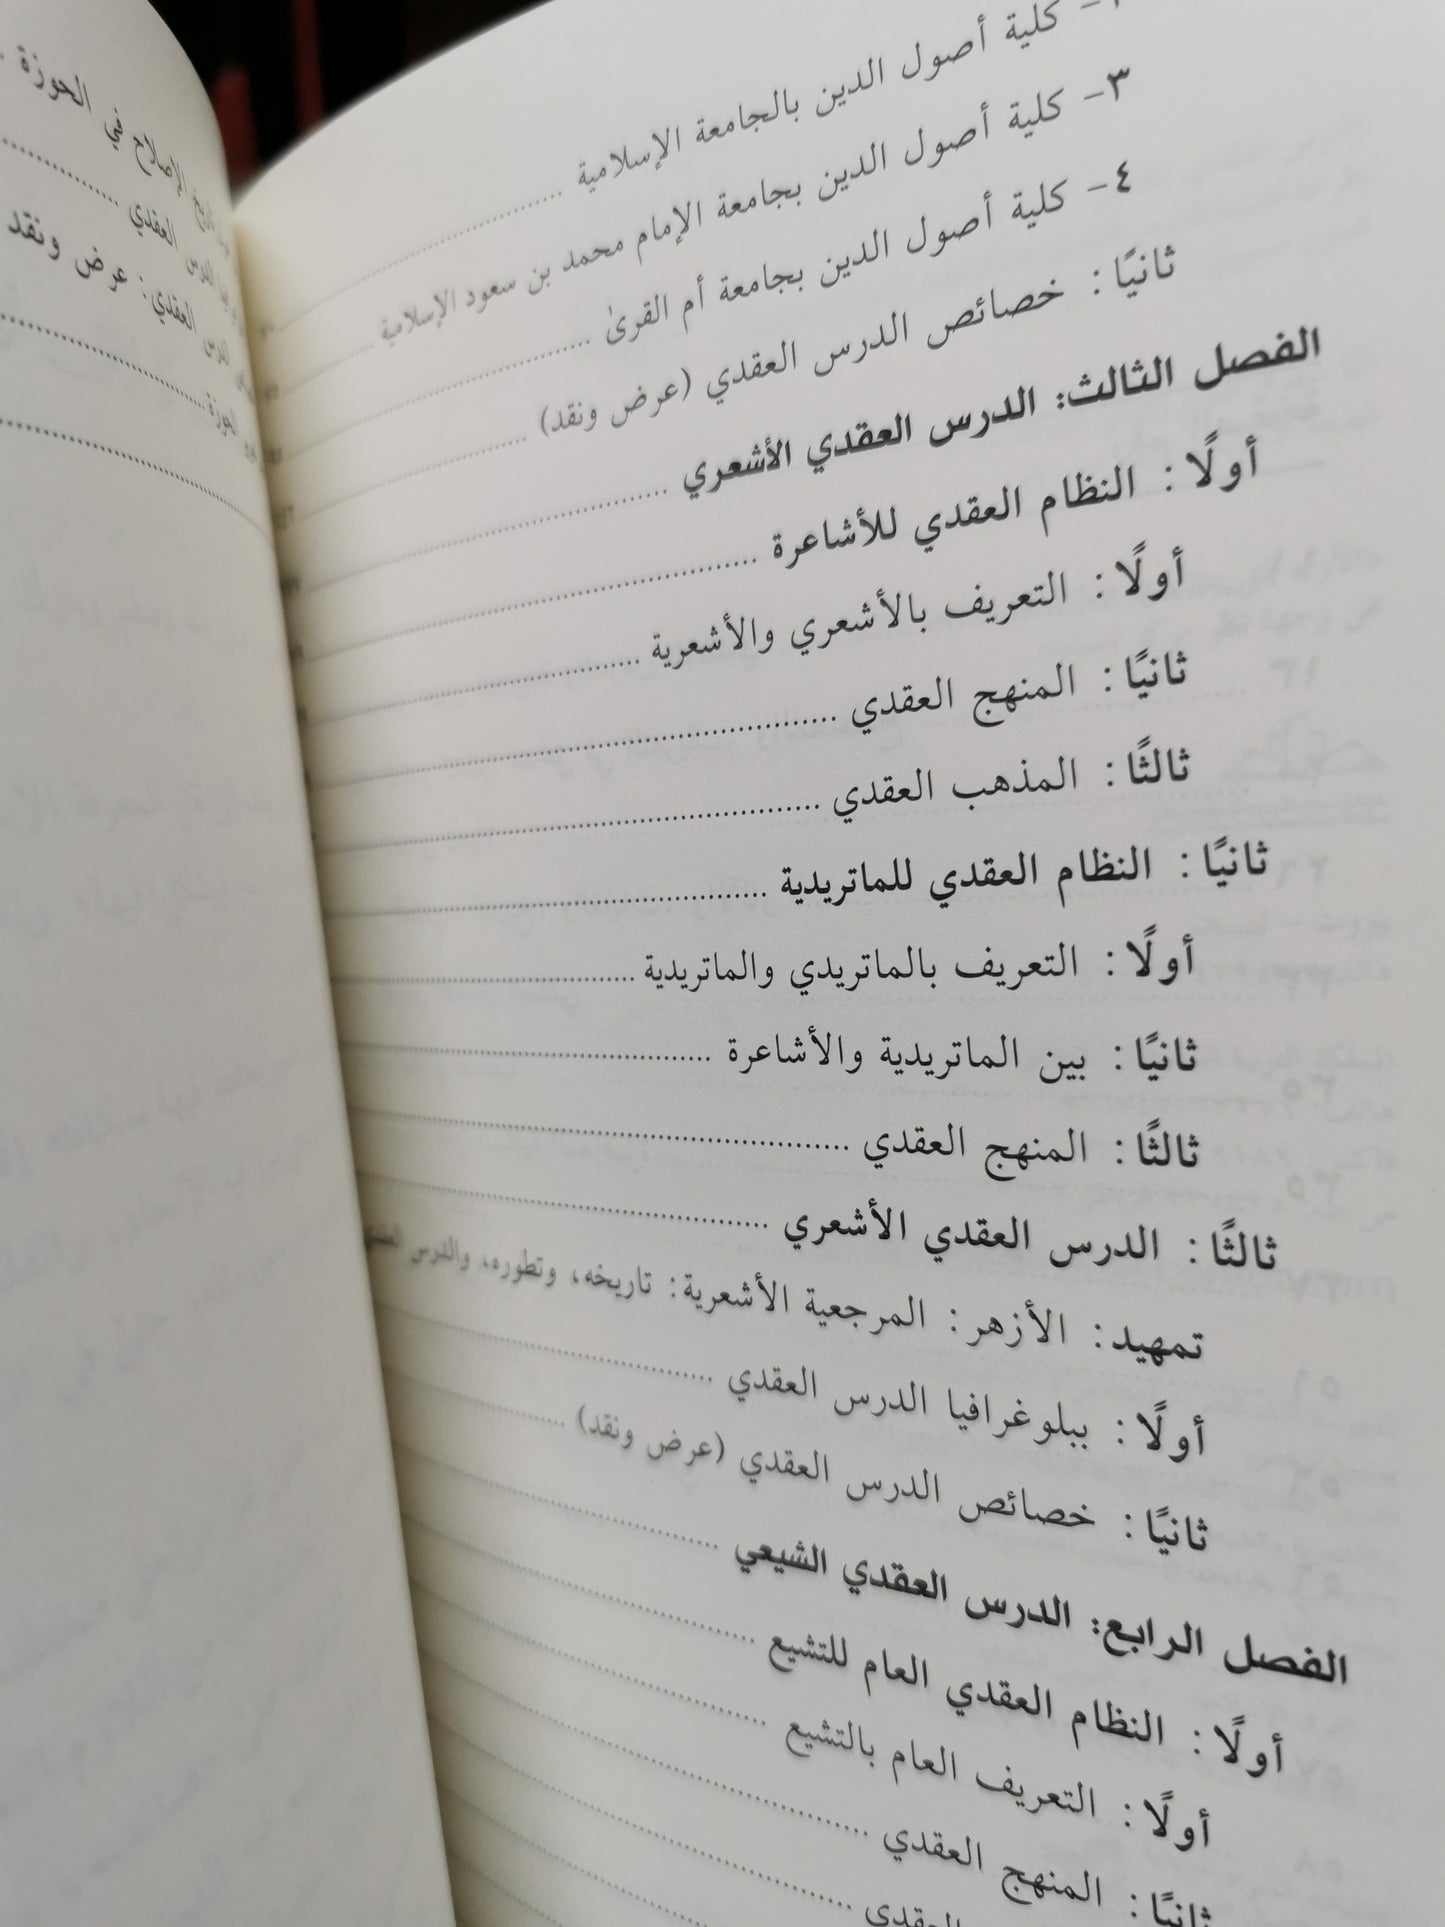 كلية أصول الدين بالجامعة الإسلامية
٣- كلية أصول الدين بجامعة الإمام محمد بن سعود الإسلامية
٤- كلية أصول الدين بجامعة أم القرىٰ
ثانيًا: خصائص الدرس العقدي (عرض ونقد)
الفصل الثالث: الدرس العقدي الأشعري
أولًا: النظام العقدي للأشاعرة
أولًا: التعريف بالأشعري والأشعرية
ثانيًا: المنهج العقدي
ثالثًا: المذهب العقدي
ثانيًا: النظام العقدي للماتريدية
أولًا: التعريف بالماتريدي والماتريدية
ثانيًا: بين الماتريدية والأشاعرة
ثالثًا: المنهج العقدي
ثالثًا: الدرس العقدي الأشعري
تمهيد: الأزهر: المرجعية الأشعرية: تاريخه، وتطوره، والدرس
أولًا: ببلوغرافيا الدرس العقدي
ثانيًا: خصائص الدرس العقدي (عرض ونقد)
الفصل الرابع: الدرس العقدي الشيعي
أولًا: النظام العقدي العام للتشيع
أولًا: التعريف العام بالتشيع
ثانيًا: المنهج العقدي
العقدي
الإصلاح في الحوزة
الدرس العقدي
الدرس العقدي: عرض ونقد
الحوزة